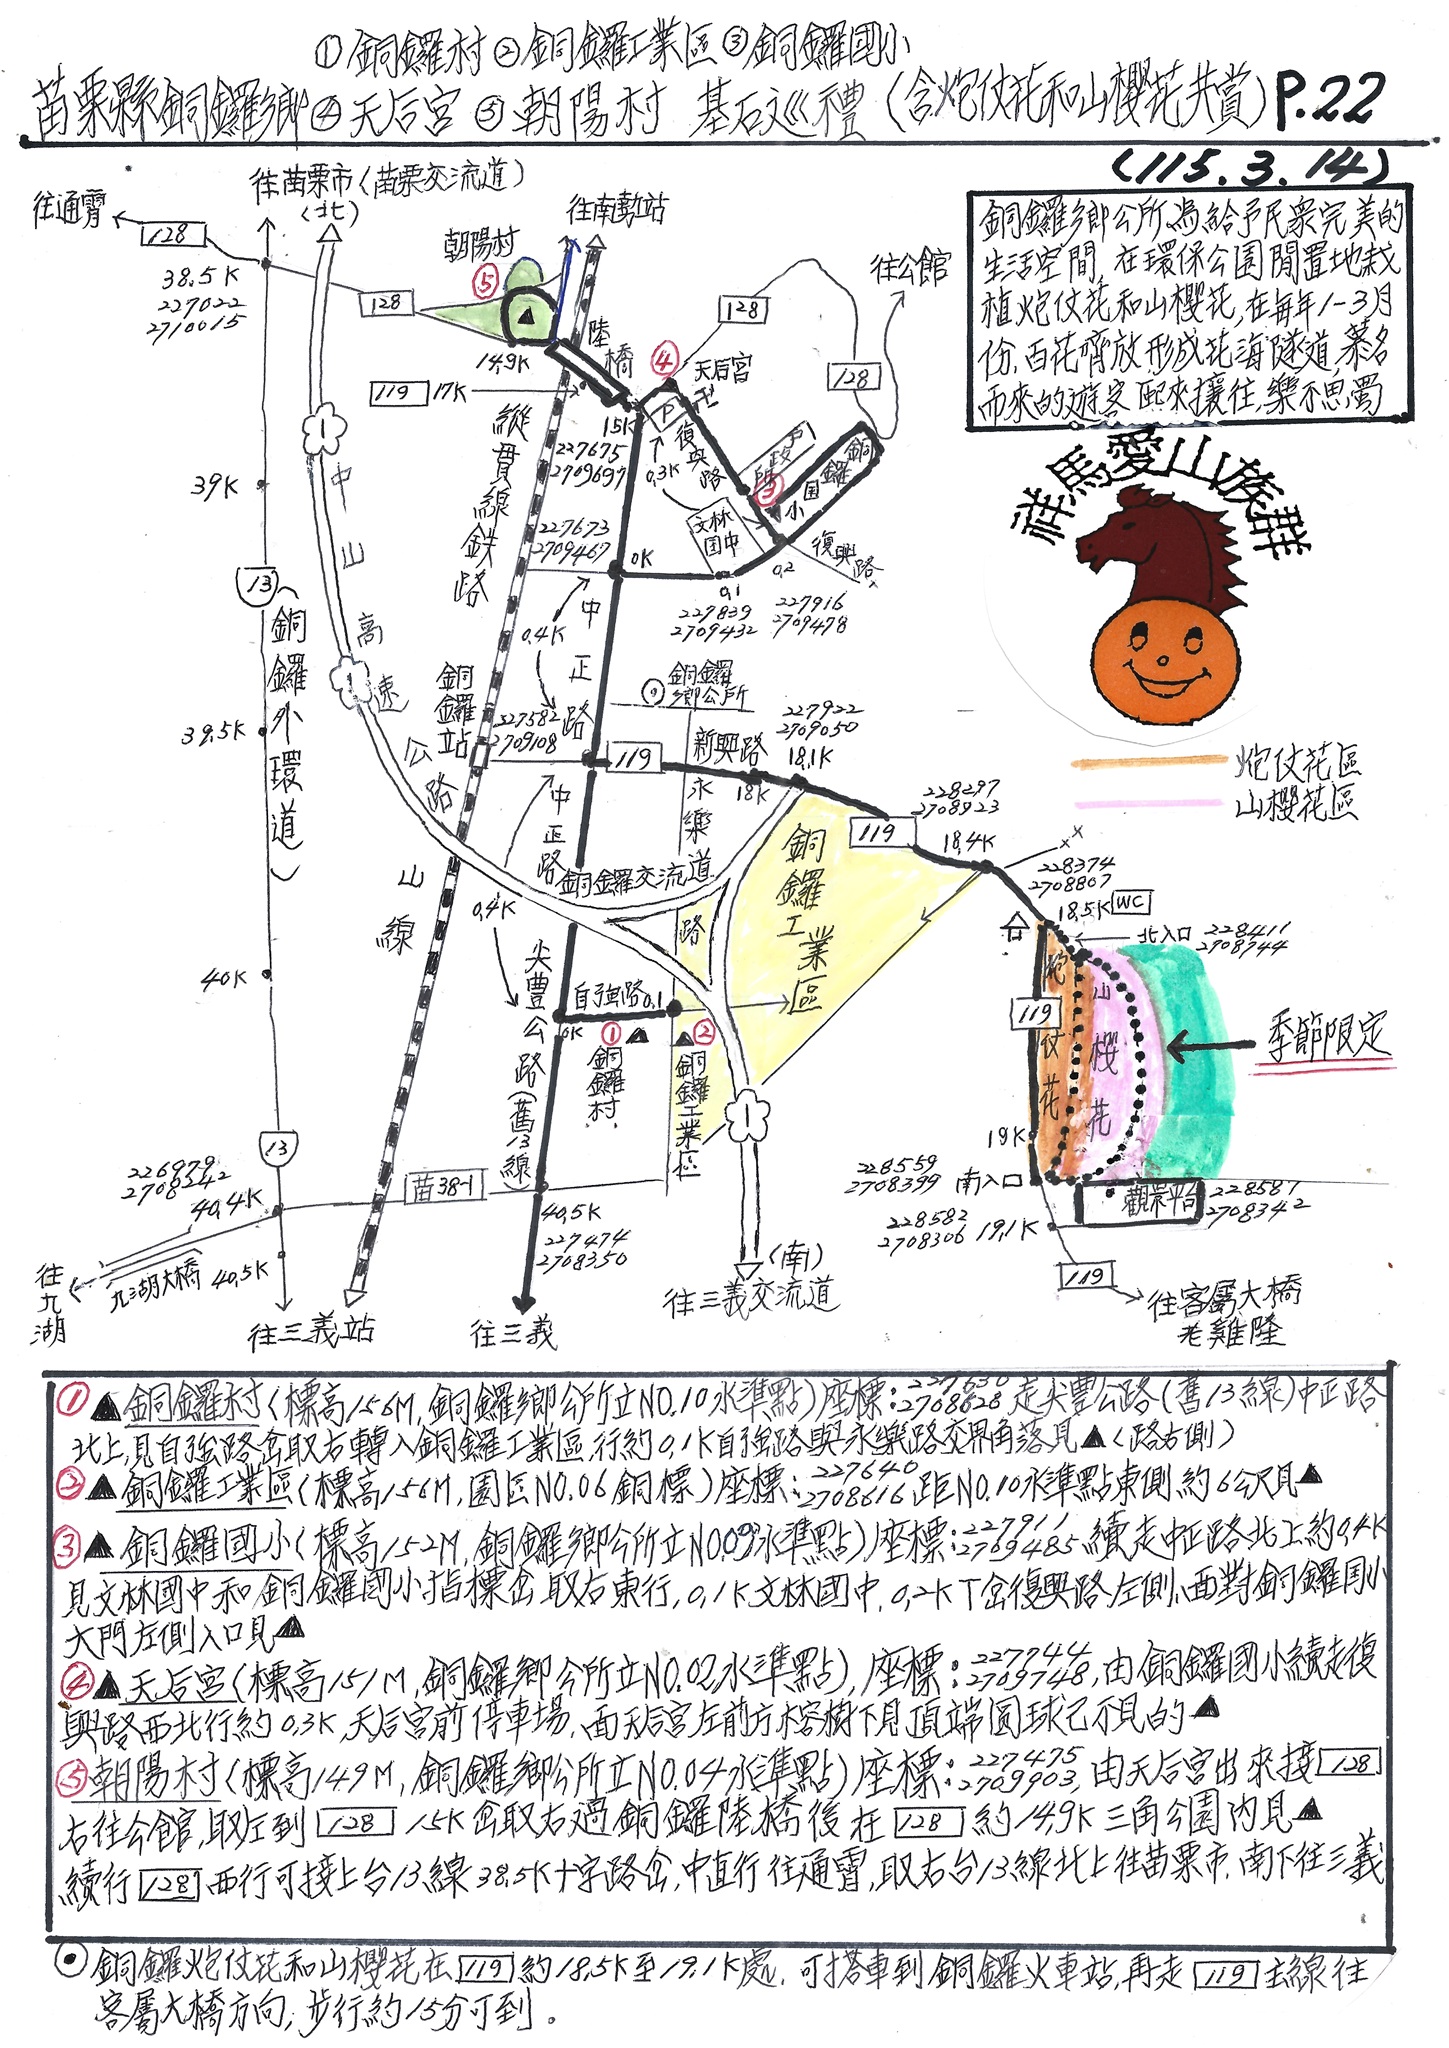 ①銅鑼村②銅鑼工業區③銅鑼國小
苗栗縣銅鑼鄉④天后宮⑤朝陽村 基石巡禮(含炮仗花和山櫻花共賞)P.22
(115.3.14)
銅鑼鄉公所為給予民眾完美的
生活空間,在環保公園閒置地栽
植炮仗花和山櫻花,在每年1-3月
份,百花齊放形成花海隧道,慕名
而來的遊客熙來攘往,樂不思蜀
祥馬愛山族群
炮仗花區
山櫻花區
往苗栗市(苗栗交流道)
(北)
往通霄
128
38.5K
227022
2710015
往南勢站
朝陽村
⑤
128
14.9K
陸橋
119 17K
15K
227675
2709697
④
天后宮
卍
P
128
往公館
128
復興路
0.3K
戶政所
③
銅鑼國小
文林國中
復興路
227673
2709467
0K
0.1
0.2
227839
2709432
227916
2709478
縱貫線鉄路
山線
中山高速公路
1
39K
13
(銅鑼外環道)
39.5K
40K
0.4K
中正路
銅鑼站
227582
2709108
銅鑼鄉公所
119
新興路
18K
18.1K
227922
2709050
永樂路
中正路
銅鑼交流道
銅鑼工業區
119
228297
2708923
18.4K
228374
2708807
18.5K
WC
北入口
228411
2708744
0.4K
尖豐公路(舊13線)
自強路0.1
0K
①
銅鑼村
②
銅鑼工業區
1
119
炮仗花
山櫻花
季節限定
19K
228559
2708399
南入口
觀景平台
228587
2708342
228582
2708306
19.1K
119
往客屬大橋
老雞隆
13
226979
2708342
40.4K
苗38-1
40.5K
227474
2708350
往九湖
九湖大橋
40.5K
往三義站
往三義
(南)
往三義交流道
①▲銅鑼村(標高156M,銅鑼鄉公所立NO.10水準點)座標:227630 2708628走尖豐公路(舊13線)中正路
北上,見自強路岔取右轉入銅鑼工業區,行約0.1K自強路與永樂路交界角落見▲(路右側)
②▲銅鑼工業區(標高156M,園區NO.06銅標)座標:227640 2708616距NO.10水準點東側約6公尺見▲
③▲銅鑼國小(標高152M,銅鑼鄉公所立NO.09水準點)座標:227911 2709485續走中正路北上約0.4K
見文林國中和銅鑼國小指標岔取右東行,0.1K文林國中,0.2KT岔復興路左側,面對銅鑼國小
大門左側入口見▲
④▲天后宮(標高151M,銅鑼鄉公所立NO.02水準點),座標:227744 2709748,由銅鑼國小續走復
興路西北行約0.3K,天后宮前停車場,面天后宮左前方榕樹下見頂端圓球已不見的▲
⑤朝陽村(標高149M,銅鑼鄉公所立NO.04水準點)座標:227475 2709903,由天后宮出來接128
右往公館,取左到128 15K岔取右過銅鑼陸橋後在128約14.9K三角公園內見▲
續行128西行可接上台13線38.5K十字路岔,中直行往通霄,取右台13線北上往苗栗市,南下往三義
⊙銅鑼炮仗花和山櫻花在119約18.5K至19.1K處,可搭車到銅鑼火車站,再走119主線往
客屬大橋方向,步行約15分可到。